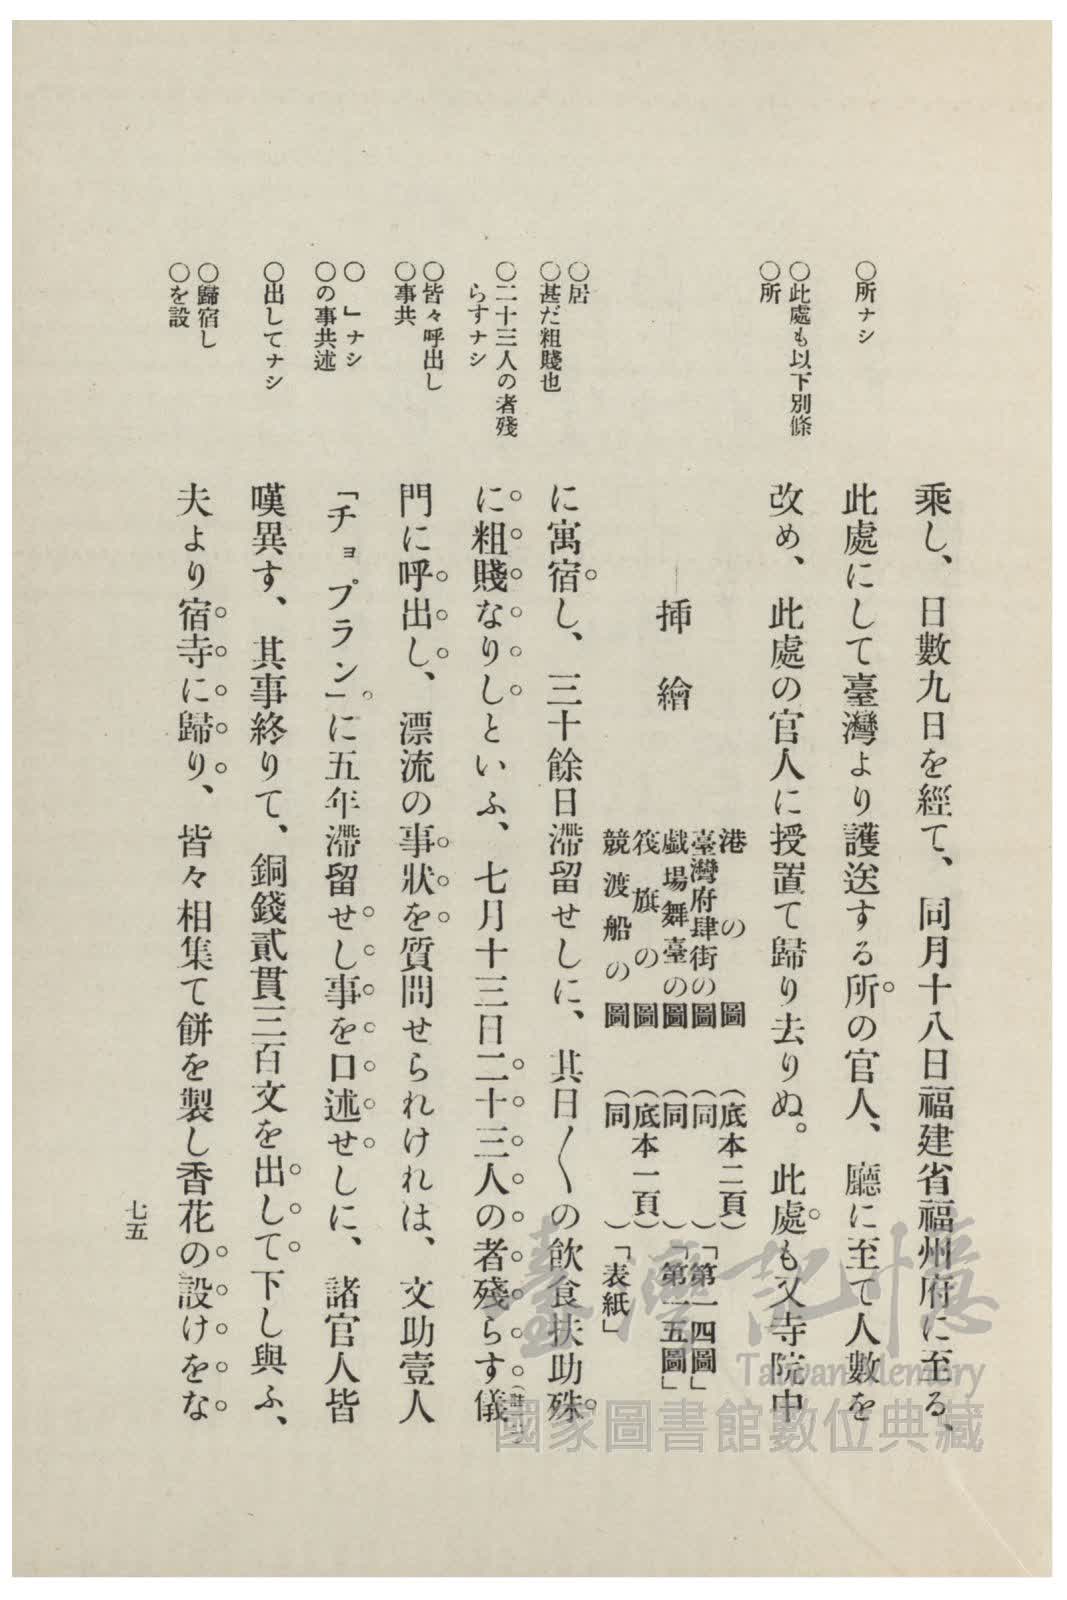 ○所ナシ
○此處も以下別條
○所
○居
○甚だ粗賤也
○二十三人の者殘
らすナシ
○皆々呼出し
○事共
○　」ナシ
○の事共述
○出してナシ
○歸宿し
○を設
乘し、日數九日を經て、同月十八日福建省福州府に至る、
此處にして臺灣より護送する所の官人、廳に至て人數を
改め、此處の官人に授置て歸り去りぬ。此處も又寺院中
挿繪
港の圖　（底本二頁）
臺灣府肆街の圖　（同　　）「第一四圖」
戯場舞臺の圖　（同　　）「第一五圖」
筏旗の圖　（底本一頁）
競渡船の圖　（同　　）「表紙」
に寓宿し、三十餘日滯留せしに、其日〱の飮食扶助殊
に粗賤なりしといふ、七月十三日二十三人の者殘らす儀
門に呼出し、漂流の事狀を質問せられけれは、文助壹人
「チョプラン」に五年滯留せし事を口述せしに、諸官人皆
嘆異す、其事終りて、銅錢貳貫三百文を出して下し與ふ、
夫より宿寺に歸り、皆々相集て餅を製し香花の設けをな
七五
臺灣記憶
Taiwan Memory
國家圖書館數位典藏